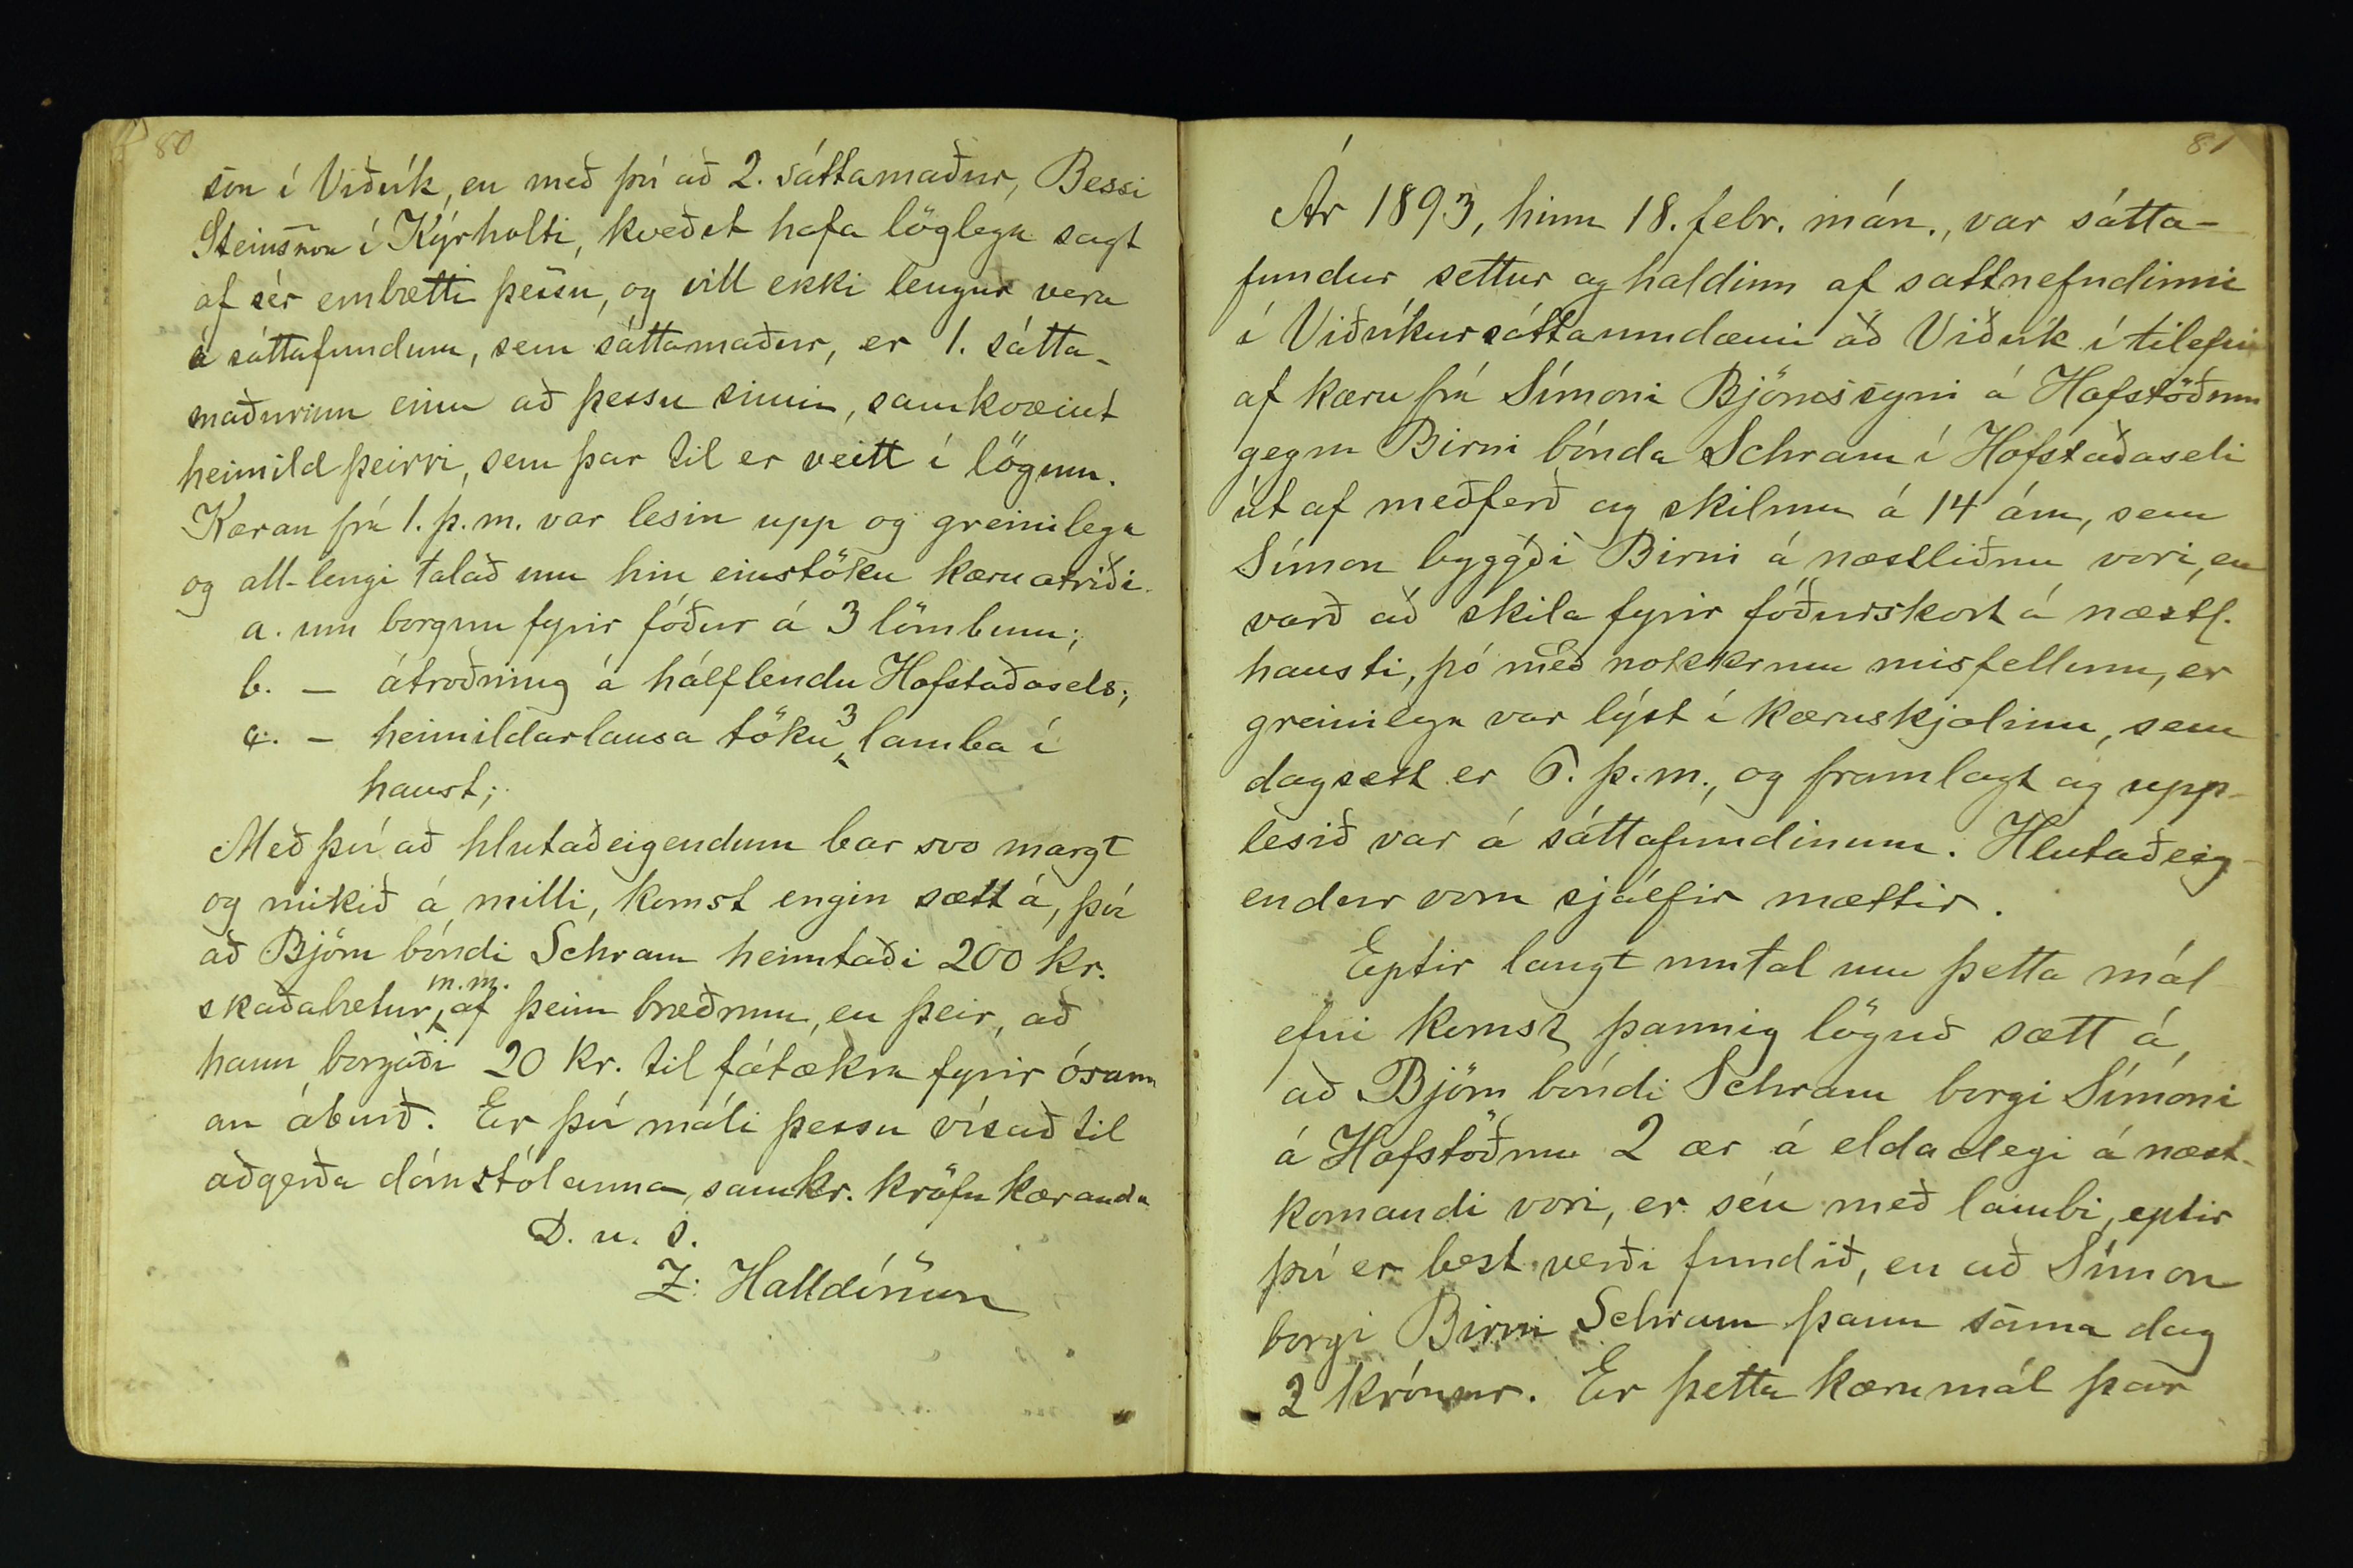 80
son í Viðvík, en með því að 2. sáttamaður, Bessi
Steinsson í Kýrholti, kveðst hafa löglega sagt
af sér embætti þessu, og vill ekki lengur vera
á sáttafundum, sem sáttamaður, er 1. sátta-
maðurinn einn að þessu sinni, samkvæmt
heimild þeirri, sem þar til er veitt í lögum.
Kæran frá 1. þ. m. var lesin upp og greinilega
og all-lengi talað um hin einstöku kæruatriði.
a. um borgun fyrir fóður á 3 lömbum;
b. — átroðning á hálflendu Hofstaðasels;
c. — heimildarlausa töku 3 lamba í
haust;
Með því að hlutaðeigendum bar svo margt
og mikið á milli, komst engin sætt á, því
að Björn bóndi Schram heimtaði 200 kr.
skaðabætur m.m. af þeim bræðrum, en þeir, að
hann borgaði 20 kr. til fátækra fyrir ósann
an áburð. Er því máli þessu vísað til
aðgerða dómstólanna, samkv. kröfu kæranda
D. u. s.
Z. Halldórsson
81
Ár 1893, hinn 18. febr. mán., var sátta-
fundur settur og haldinn af sáttnefndinni
í Viðvíkursáttaumdæmi að Viðvík í tilefni
af kæru frá Símoni Björnssyni á Hofstöðum
gegn Birni bónda Schram í Hofstaðaseli
út af meðferð og skilum á 14 ám, sem
Símon byggði Birni á næstliðnu vori, en
varð að skila fyrir fóðurskort á næstl.
hausti, þó með nokkrum misfellum, er
greinilega var lýst í kæruskjalinu, sem
dagsett er 6. þ. m., og framlagt og upp-
lesið var á sáttafundinum. Hlutaðeig-
endur voru sjálfir mættir.
Eptir langt umtal um þetta mál
efni komst þannig löguð sætt á,
að Björn bóndi Schram borgi Símoni
á Hofstöðum 2 ær á eldadegi á næst-
komandi vori, er séu með lambi, eptir
því er best verði fundið, en að Símon
borgi Birni Schram þann sama dag
2 krónur. Er þetta kærumál þar